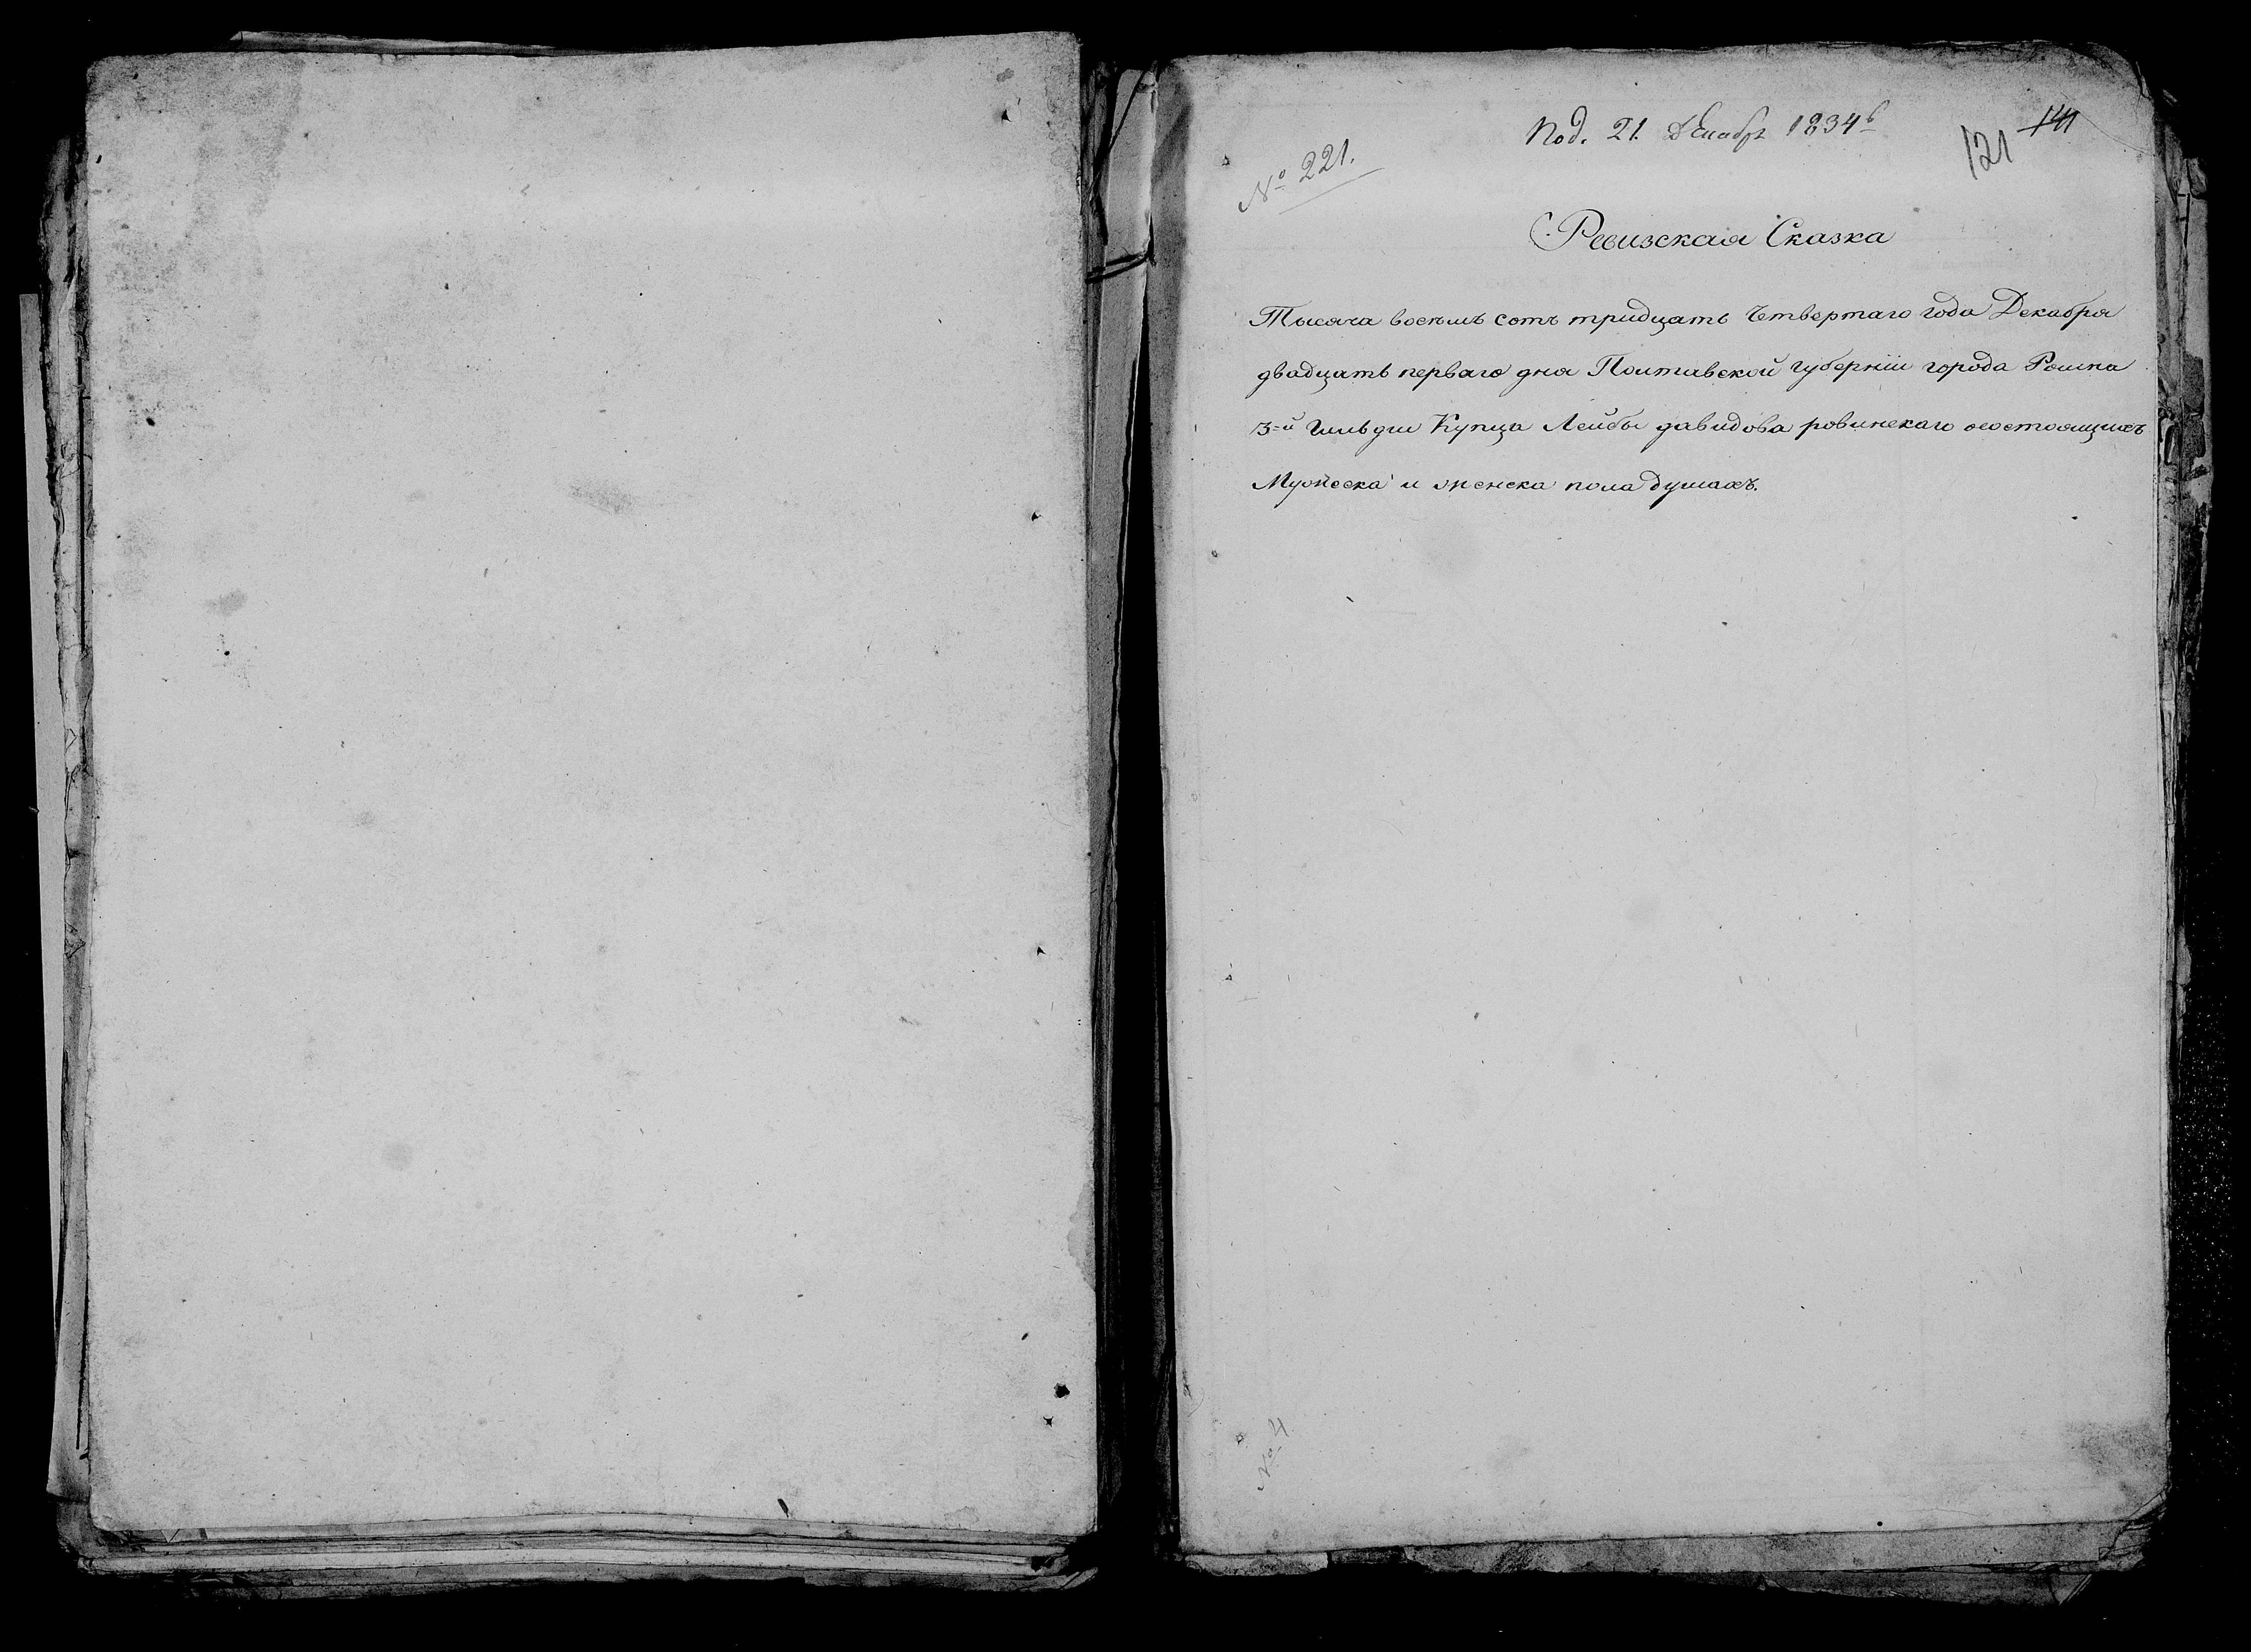 Под. 21. Декабря 1834
121 141
№ 221.
Ревизская Сказка
Тысяча восемь сотъ тридцать четвертаго года Декабря
двадцать перваго дня Полтавской губерніи города Ромна
3=й Гильдии Купца Лейбы давидова ровинскаго о состоящихъ
Мужеска и женска пола душахъ.
№ 4